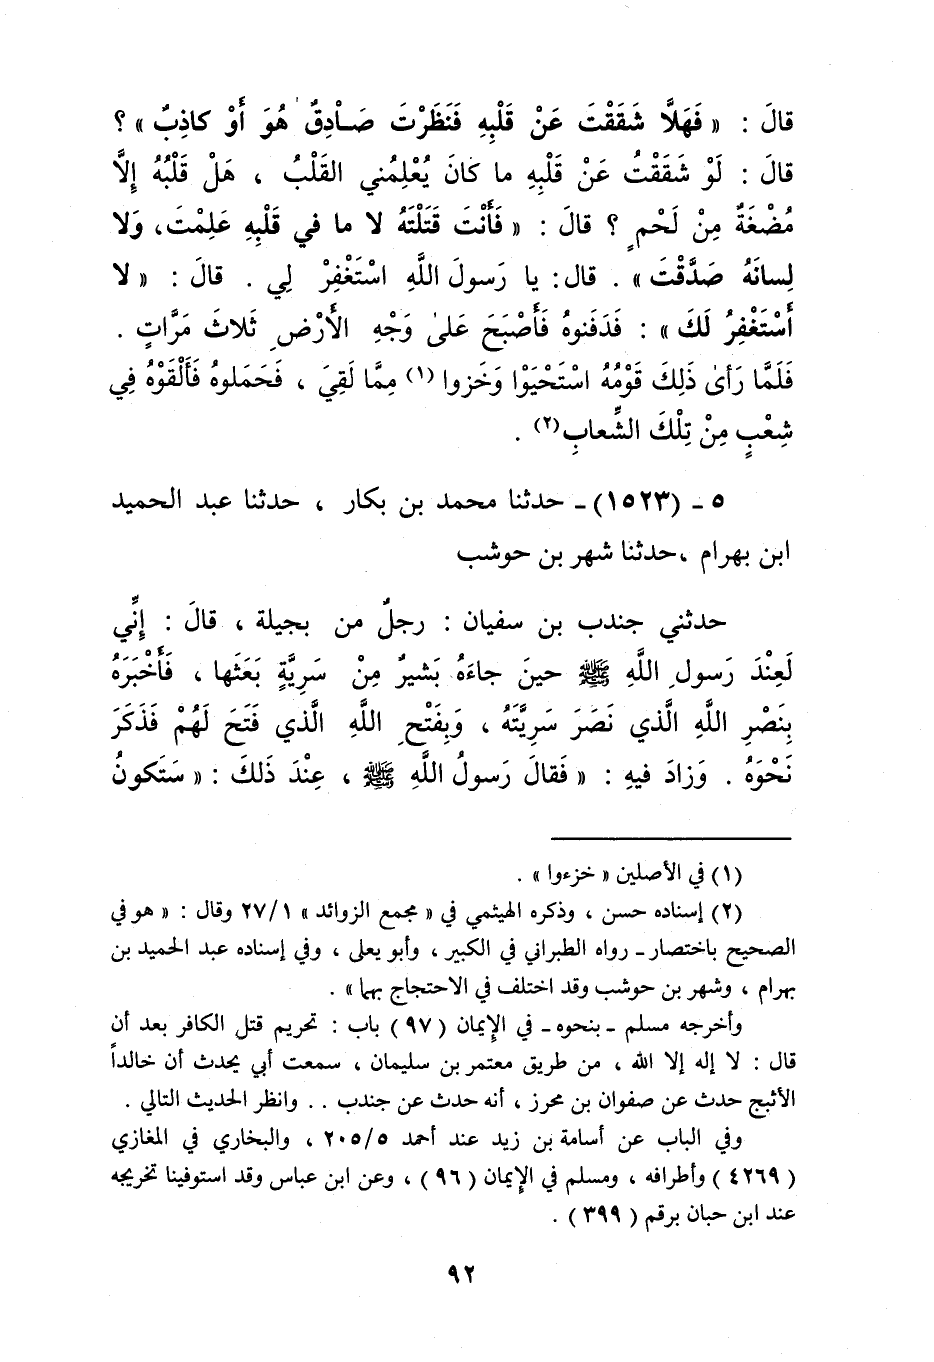 قالَ : « فَهَلَّا شَقَقْتَ عَنْ قَلْبِهِ فَنَظَرْتَ صَادِقٌ هُوَ أَوْ كاذِبٌ » ؟
قالَ : لَوْ شَقَقْتُ عَنْ قَلْبِهِ ما كانَ يُعْلِمُني القَلْبُ ، هَلْ قَلْبُهُ إِلَّا
مُضْغَةٌ مِنْ لَحْمٍ ؟ قالَ : « فَأَنْتَ قَتَلْتَهُ لا ما في قَلْبِهِ عَلِمْتَ، وَلا
لِسانَهُ صَدَّقْتَ » . قال: يا رَسولَ اللَّهِ اسْتَغْفِرْ لِي . قالَ : « لا
أَسْتَغْفِرُ لَكَ » : فَدَفَنوهُ فَأَصْبَحَ عَلىٰ وَجْهِ الأَرْضِ ثَلاثَ مَرَّاتٍ .
فَلَمَّا رَأىٰ ذَلِكَ قَوْمُهُ اسْتَحْيَوْا وَخَزوا (١) مِمَّا لَقِيَ ، فَحَمَلوهُ فَأَلْقَوْهُ فِي
شِعْبٍ مِنْ تِلْكَ الشِّعابِ (٢) .
٥ ـ (١٥٢٣) ـ حدثنا محمد بن بكار ، حدثنا عبد الحميد
ابن بهرام ،حدثنا شهر بن حوشب
حدثني جندب بن سفيان : رجلٌ من بجيلة ، قالَ : إِنِّي
لَعِنْدَ رَسولِ اللَّهِ ﷺ حينَ جاءَهُ بَشيرٌ مِنْ سَرِيَّةٍ بَعَثَها ، فَأَخْبَرَهُ
بِنَصْرِ اللَّهِ الَّذي نَصَرَ سَرِيَّتَهُ ، وَبِفَتْحِ اللَّهِ الَّذي فَتَحَ لَهُمْ فَذَكَرَ
نَحْوَهُ . وَزادَ فيهِ : « فَقالَ رَسولُ اللَّهِ ﷺ ، عِنْدَ ذَلكَ : « سَتَكونُ
(١) في الأصلين « خزءوا » .
(٢) إسناده حسن ، وذكره الهيثمي في « مجمع الزوائد » ٢٧/١ وقال : « هو في
الصحيح باختصار ـ رواه الطبراني في الكبير ، وأبو يعلى ، وفي إسناده عبد الحميد بن
بهرام ، وشهر بن حوشب وقد اختلف في الاحتجاج بهما » .
وأخرجه مسلم ـ بنحوه ـ في الإيمان ( ٩٧ ) باب : تحريم قتل الكافر بعد أن
قال : لا إله إلا الله ، من طريق معتمر بن سليمان ، سمعت أبي يحدث أن خالداً
الأثبج حدث عن صفوان بن محرز ، أنه حدث عن جندب . . وانظر الحديث التالي .
وفي الباب عن أسامة بن زيد عند أحمد ٢٠٥/٥ ، والبخاري في المغازي
( ٤٢٦٩ ) وأطرافه ، ومسلم في الإيمان ( ٩٦ ) ، وعن ابن عباس وقد استوفينا تخريجه
عند ابن حبان برقم ( ٣٩٩ ) .
٩٢